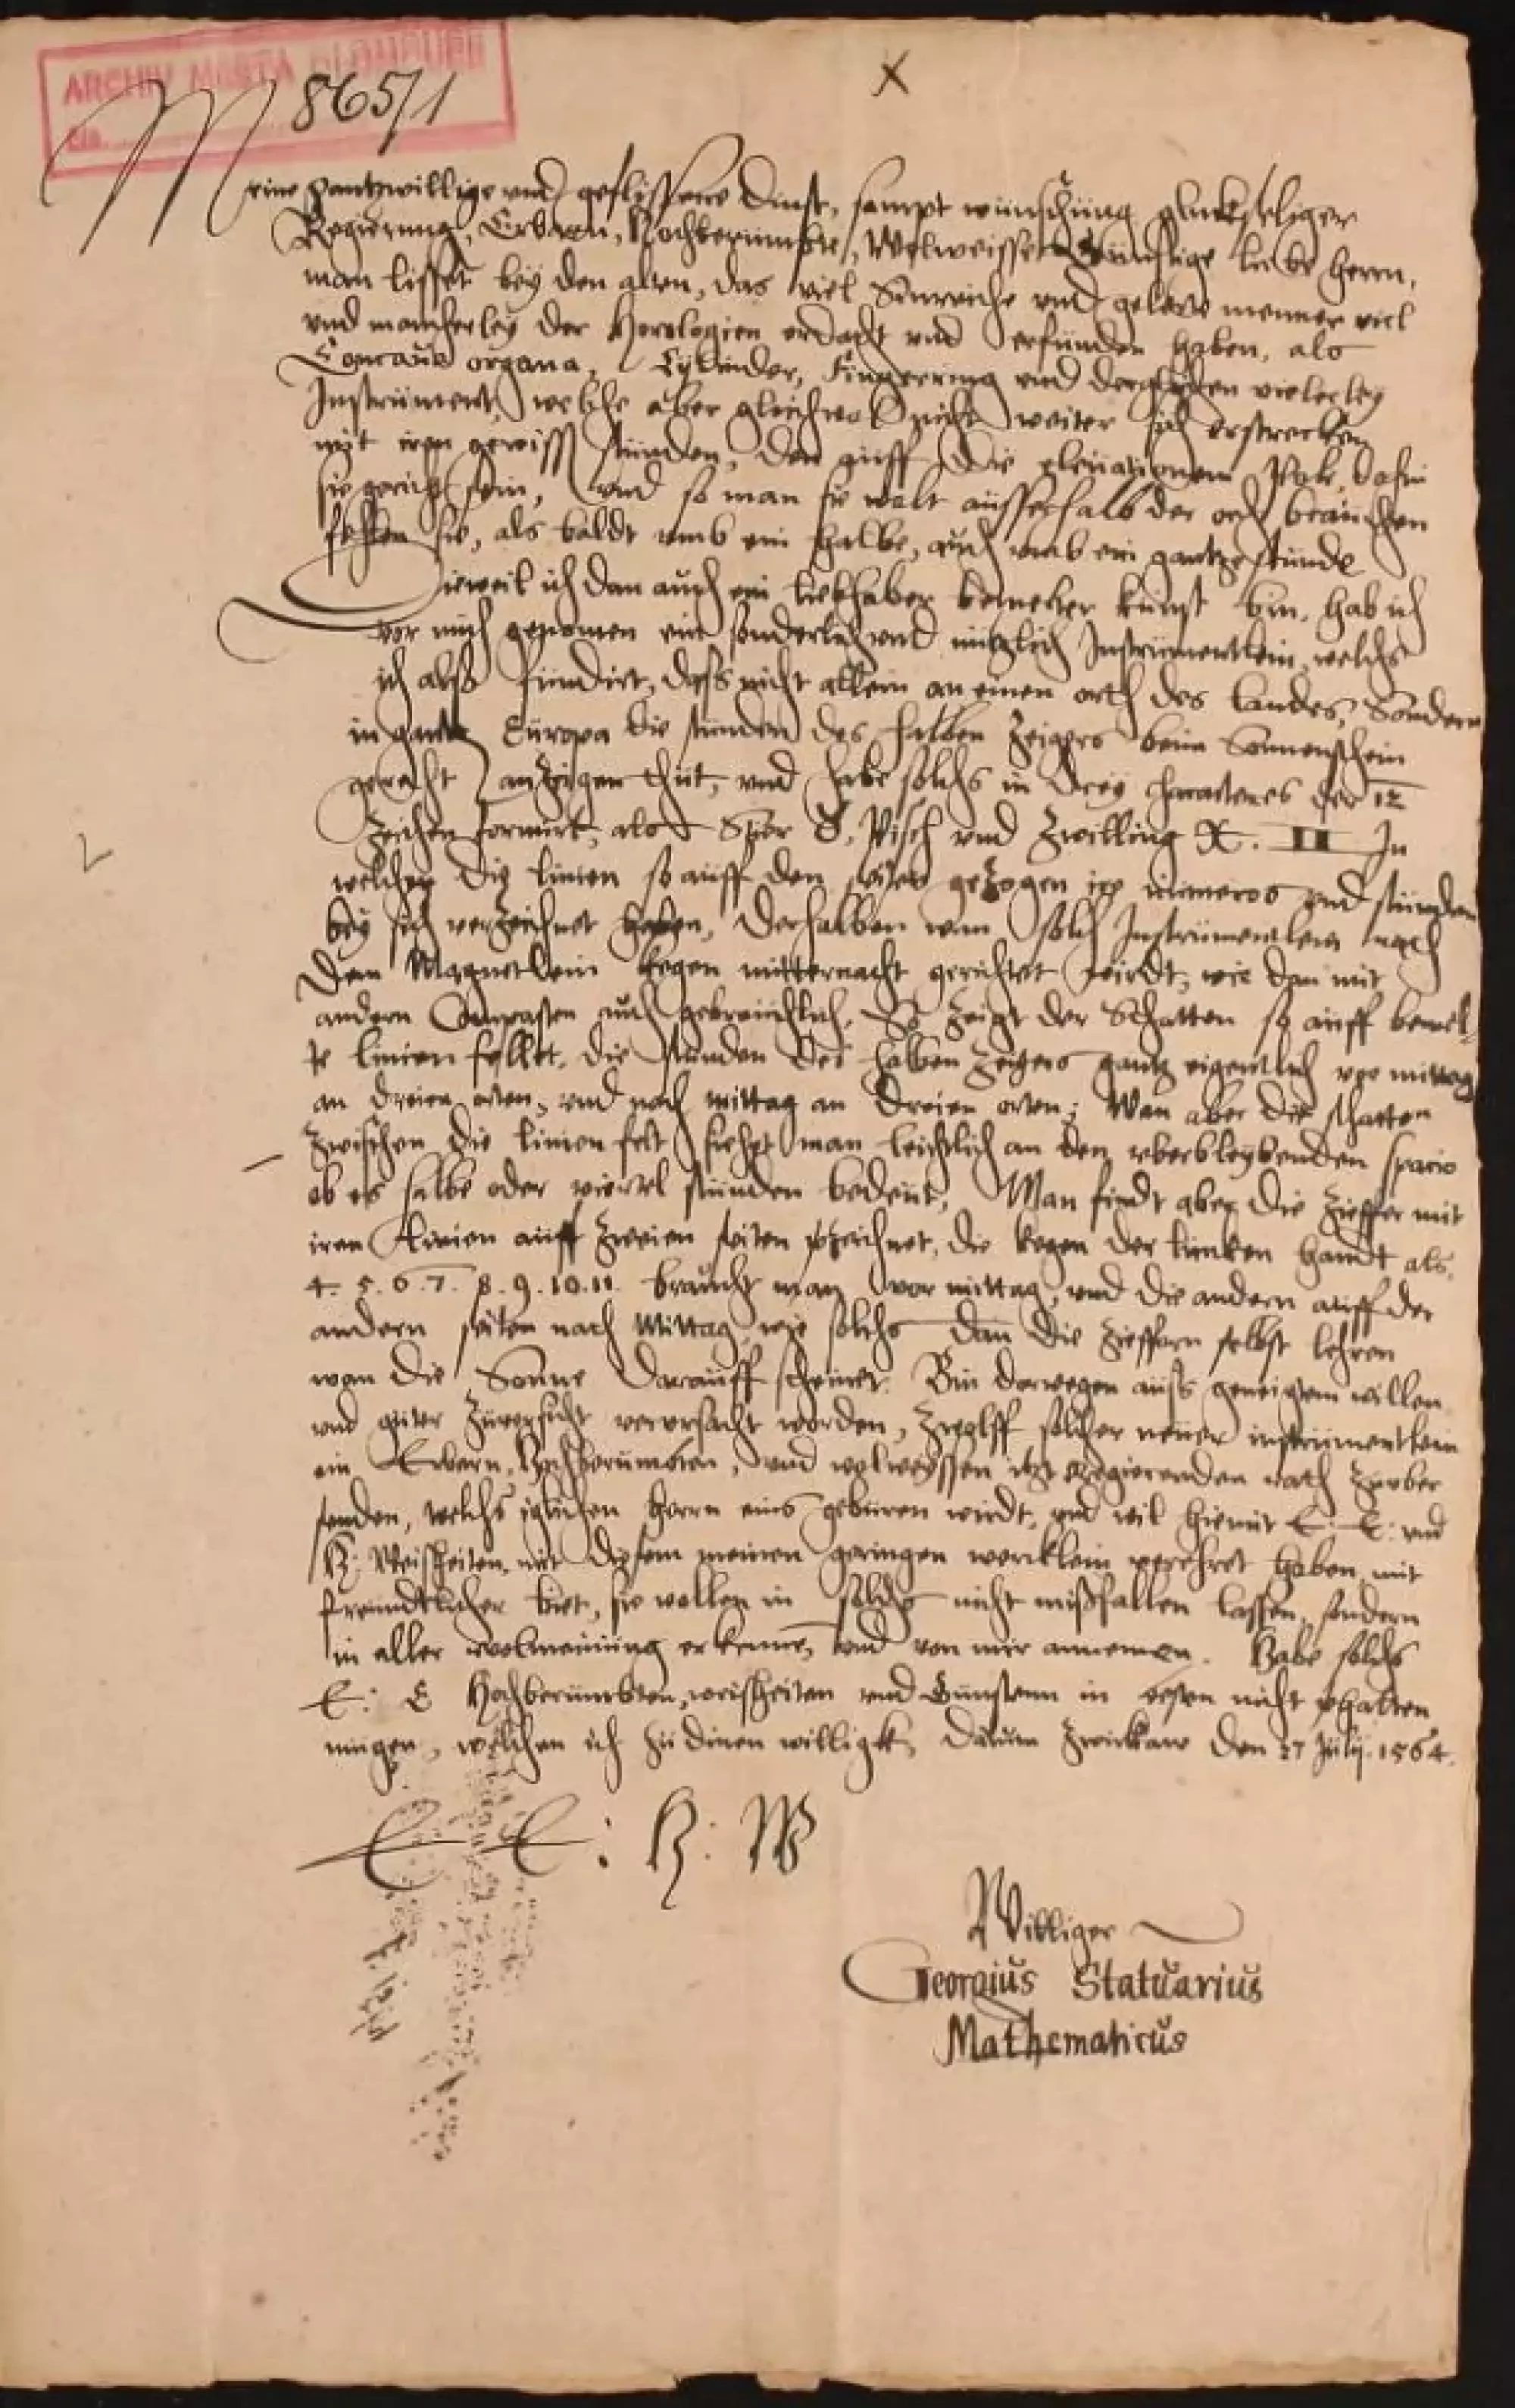 ARCHIV MĚSTA OLOMOUCE
865/1
Meine gantzwillige und geflissene dinst, sampt wünschung glückseliger
Regierung, Erbarn, Hochberümbte, Wolweisse günstige liebe herrn,
man lisset bey den alten, das viel Sinreiche und gelerte menner viel
und mancherley der Horologien erdacht und erfunden haben, als
Concava organa, Cylinder, Fingerring und dergleichen vielerley
Instrument, welche aber gleichwol nicht weiter sich erstrecken
mit iren gewiss stunden, den auff die elevationem Pole, dahin
sie gericht sein, und so man sie wolt ausserhalb der orth brauchen
fehlen sie, als baldt umb ein halbe, auch umb ein gantze stunde
Dieweil ich dan auch ein liebhaber bemelter kunst bin, hab ich
vor mich genomen ein sonderlich und nützlich Instrumentlein, welchs
ich also fundirt, dass nicht allein an einen orth des landes, Sondern
in gantz Europa die stunden des halben Zeigers beim Sonnenschein
gerecht anzeigen thut, und habe solchs in drey characteres der 12
Zeichen formirt, als Stier ♉, Visch und Zwilling ♓. ♊ In
welchen die linien so auff den seiten gezogen ire numeros und stunden
bey sich verzeichnet haben, Derhalben wan solch Instrumentlein nach
dem Magnetlein kegen mitternacht gerichtet wirdt, wie dan mit
andern Compasten auch gebreuchlich, So zeigt der Schatten so auff bemel-
te linien fellet, die stunden des halben Zeigers gantz eigentlich vor mittag
an dreien orten, und nach mittag an dreien orten; Wan aber die schatten
zwischen die linien felt siehet man leichtlich an den uberbleybenden spacio
ob es halbe oder viertel stunden bedeut, Man findt aber die Zieffer mit
iren linien auff zweien seiten verzeichnet, die kegen der lincken handt als,
4. 5. 6. 7. 8. 9. 10. 11. braucht man vor mittag, und die andern auff der
andern seiten nach Mittag, wie solchs dan die Zieffern selbst lehren
wan die Sonne darauff scheinet. Bin derwegen auss geneigtem willen
und guter zuversicht verursacht worden, Zwelff solcher neuer instrumentlein
ein Erbarn, Hochberümbten, und wolweyssen itzt Regierenden rath zuuber
senden, welchs iglichen herrn eins geburen wirdt, und wil hiemit E: E: und
H: Weisheiten, mit diesem meinen geringen wercklein verehret haben mit
freundtlicher biet, sie wollen in solchs nicht missfallen lassen, sondern
in aller wolmeinung erkennen und von mir annemen. Habe solchs
E: E Hochberümbten, weisheiten und Gunstenn in besten nicht verhalten
mügen, welchen ich zu dinen willigk, Datum Zwickaw den 27 July. 1564.
E E: H: W
Williger
Georgius Statuarius
Mathematicus